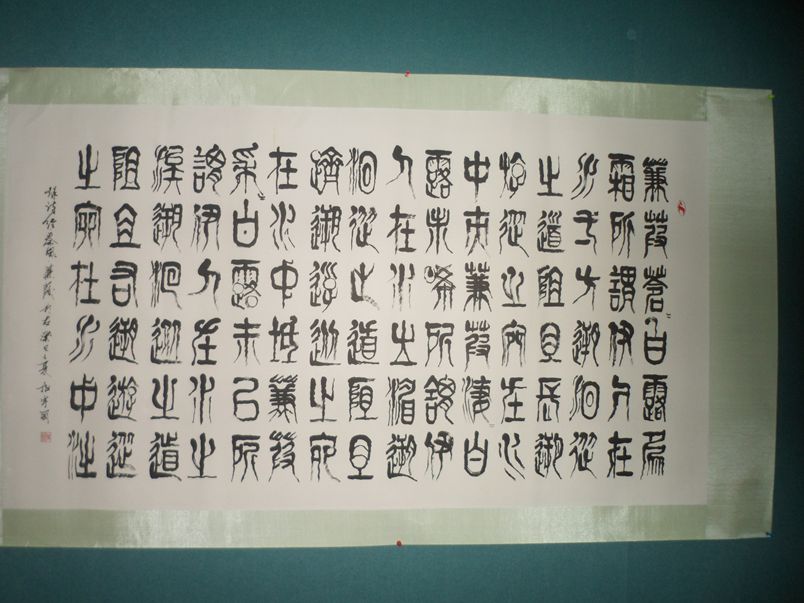 蒹葭蒼〻白露為
霜所謂伊人在
水一方遡洄從
之道阻且長遡
游從之宛在水
中央蒹葭淒〻白
露未晞所謂伊
人在水之湄遡
洄從之道阻且
躋遡游從之宛
在水中坻蒹葭
采〻白露未已所
謂伊人在水之
涘遡洄從之道
阻且右遡游從
之宛在水中沚
錄詩經秦風蒹葭於右癸巳之夏